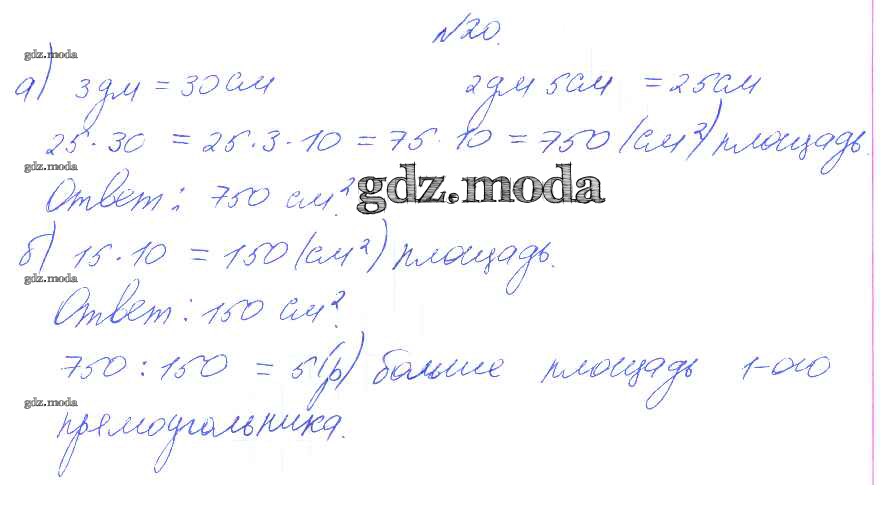 №20.
gdz.moda
а) 3 дм = 30 см 2 дм 5 см = 25 см
25 · 30 = 25 · 3 · 10 = 75 · 10 = 750 (см²) площадь.
gdz.moda
Ответ: 750 см².
gdz.moda
б) 15 · 10 = 150 (см²) площадь.
gdz.moda
Ответ: 150 см².
750 : 150 = 5 (р) больше площадь 1-ого
gdz.moda
прямоугольника.